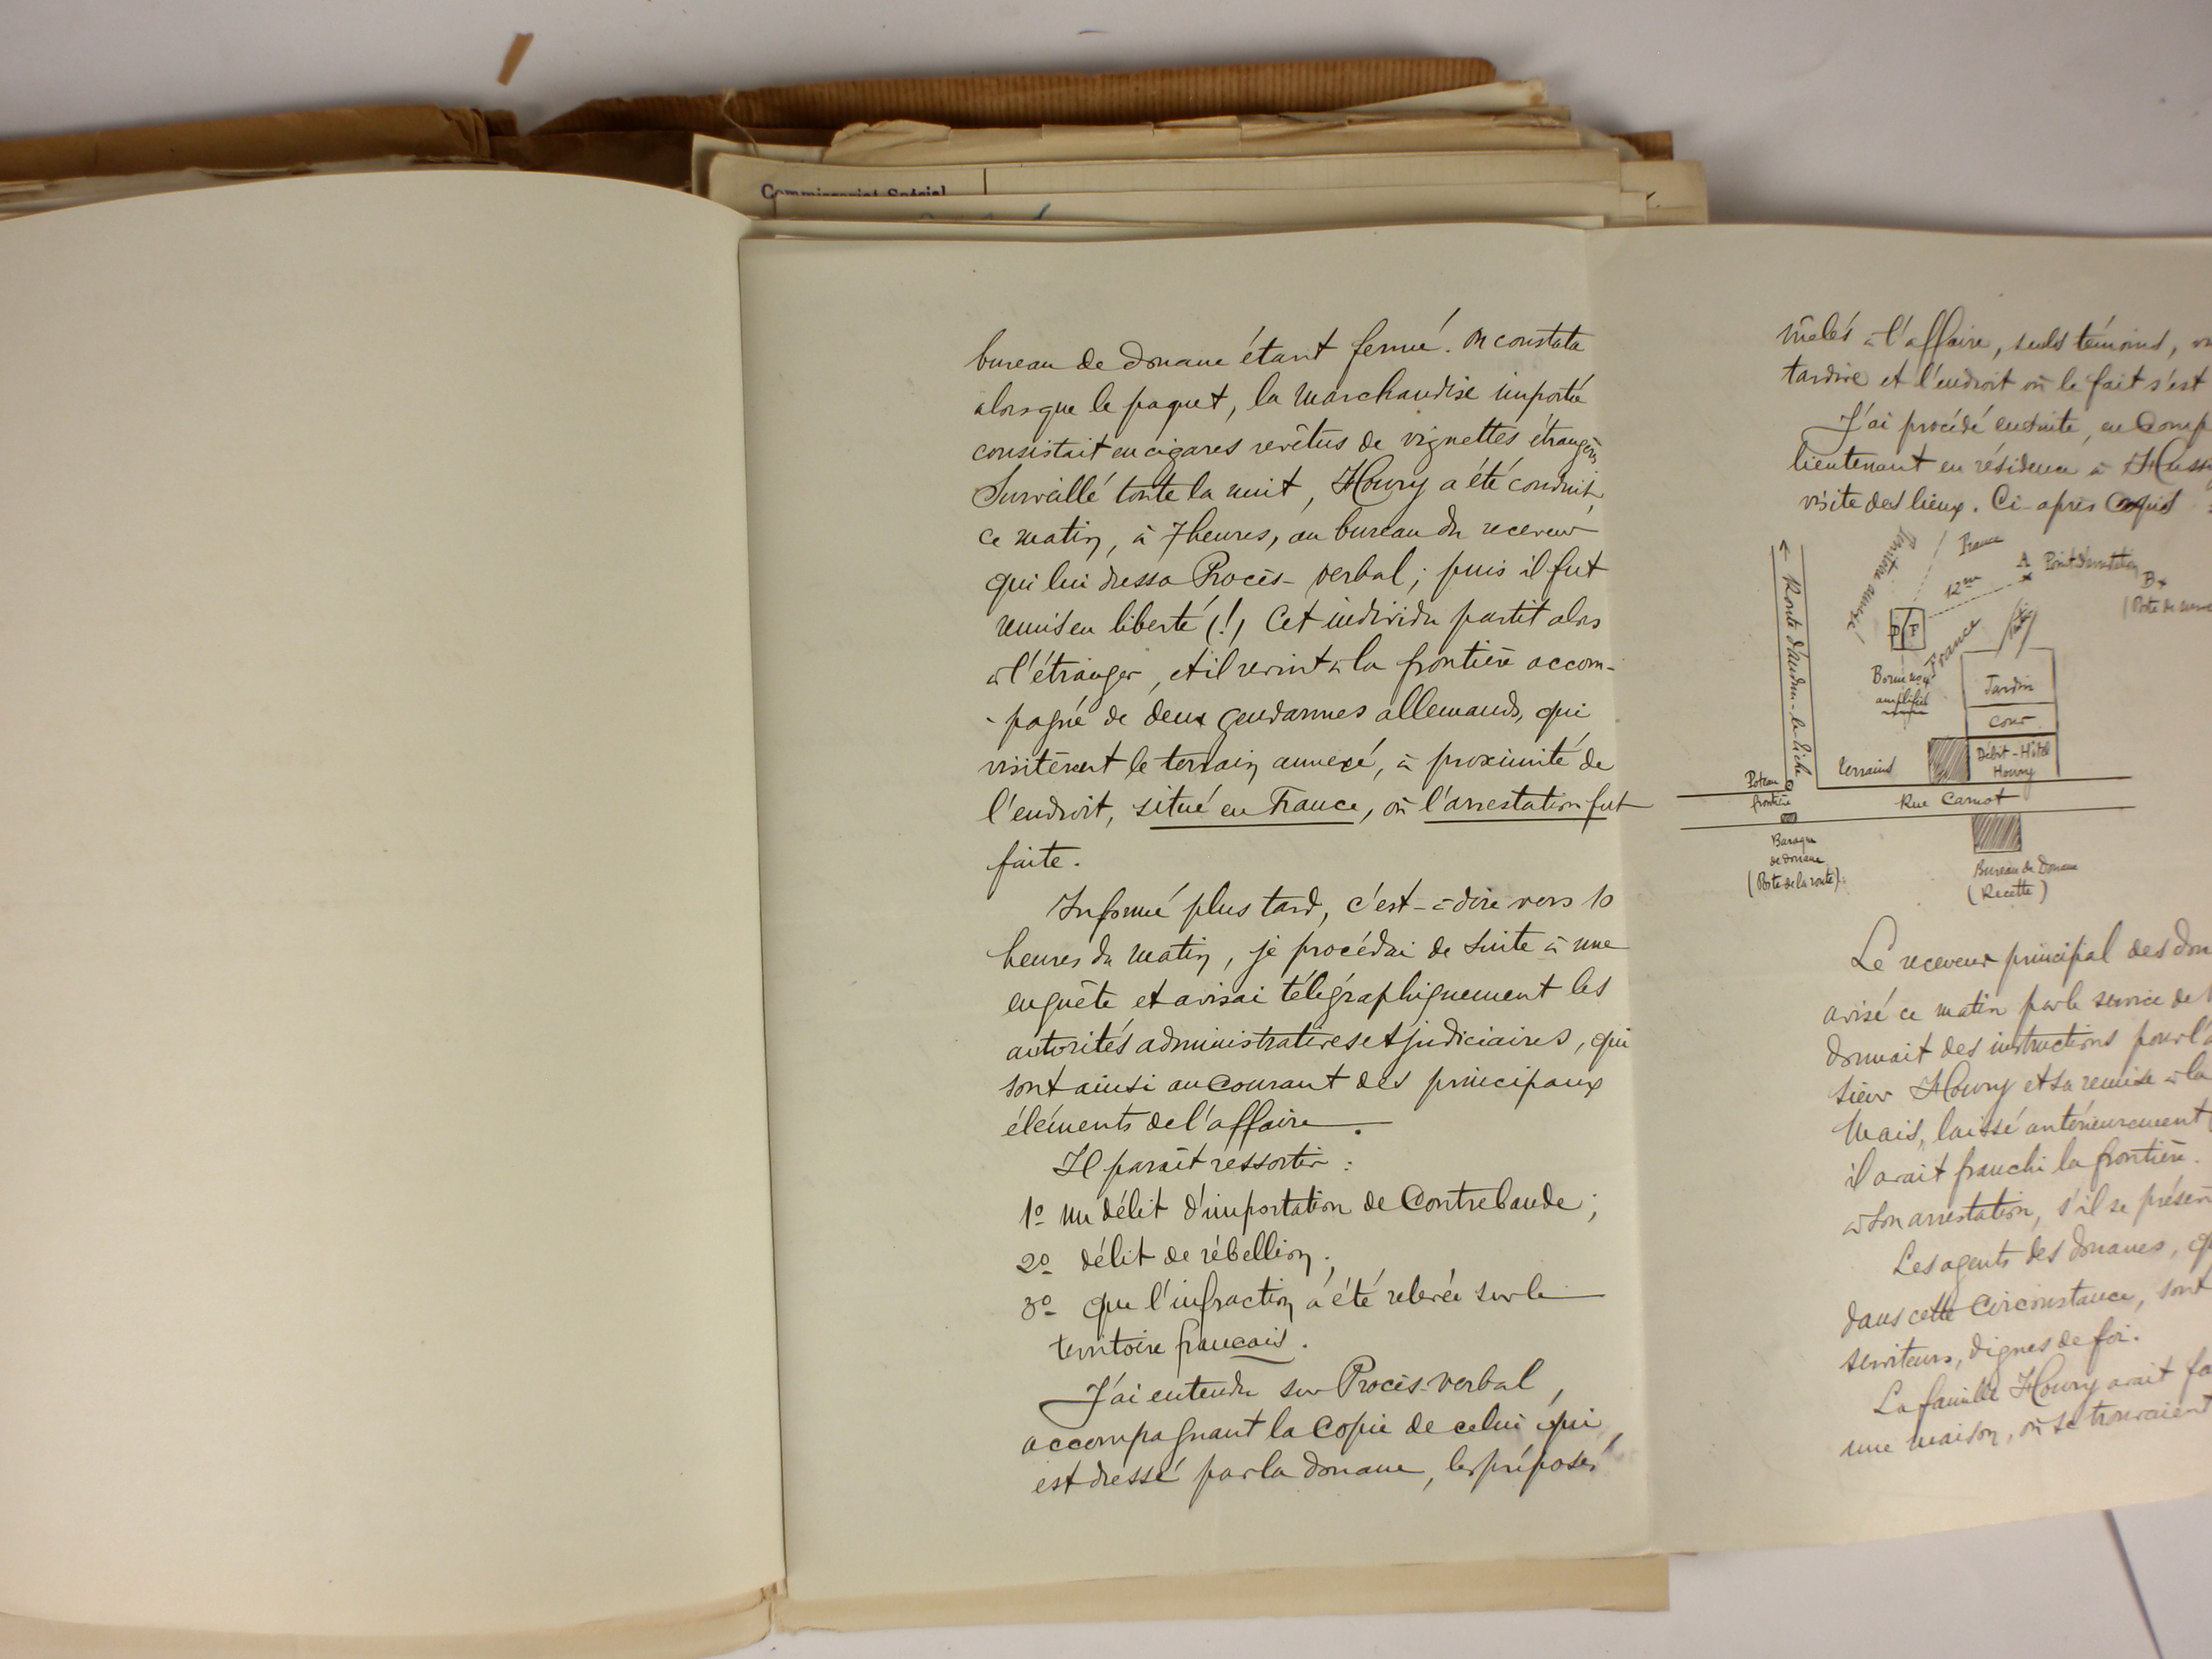 Commissariat Spécial
bureau de douane étant fermé. On constata
alors que le paquet, la marchandise importée
consistait en cigares revêtus de vignettes étrangères
Surveillé toute la nuit, Houry a été conduit,
ce matin, à 7 heures, au bureau du receveur
qui lui dressa Procès-verbal; puis il fut
remis en liberté (!) Cet individu partit alors
à l'étranger, et il revint à la frontière accom-
-pagné de deux gendarmes allemands, qui
visitèrent le terrain annexé, à proximité de
l'endroit, situé en France, où l'arrestation fut
faite.
Informé plus tard, c'est-à-dire vers 10
heures du matin, je procédai de suite à une
enquête et avisai télégraphiquement les
autorités administratives et judiciaires, qui
sont ainsi au courant des principaux
éléments de l'affaire.
Il paraît ressortir :
1º un délit d'importation de Contrebande;
2º délit de rébellion;
3º que l'infraction a été relevée sur le
territoire français.
J'ai entendu sur Procès-verbal,
accompagnant la copie de celui qui,
est dressé par la douane, les préposés
mêlés à l'affaire, seuls témoins, vu
tardive et l'endroit où le fait s'est
J'ai procédé ensuite, en Comp
lieutenant en résidence à Huss
visite des lieux. Ci-après Croquis :
France
A
12m
B
(Poste de
P F
France
Borne
amplifiée
Route d'Audun-le-Tiche
Jardin
Cour
Débit-Hôtel
Houry
Terrains
Poteau
frontière
Rue Carnot
Baraque
de douane
(Poste de la route)
Bureau de Douane
(Recette)
Le receveur principal des dou
avisé ce matin par le service de l
donnait des instructions pour l'a
sieur Houry et sa remise à la
Mais, laissé antérieurement
il avait franchi la frontière.
à son arrestation, s'il se présen
Les agents des douanes, qu
dans cette circonstance, sont
serviteurs, dignes de foi.
La famille Houry avait fa
une maison, où se trouvaient